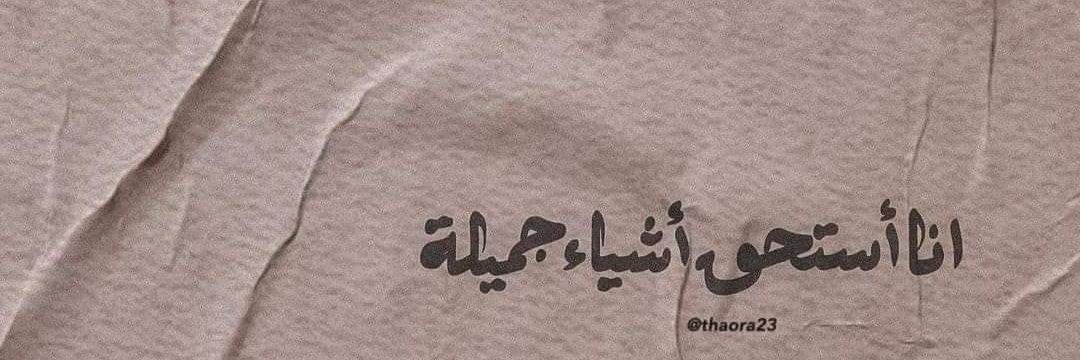 انا أستحق أشياء جميلة
@thaora23